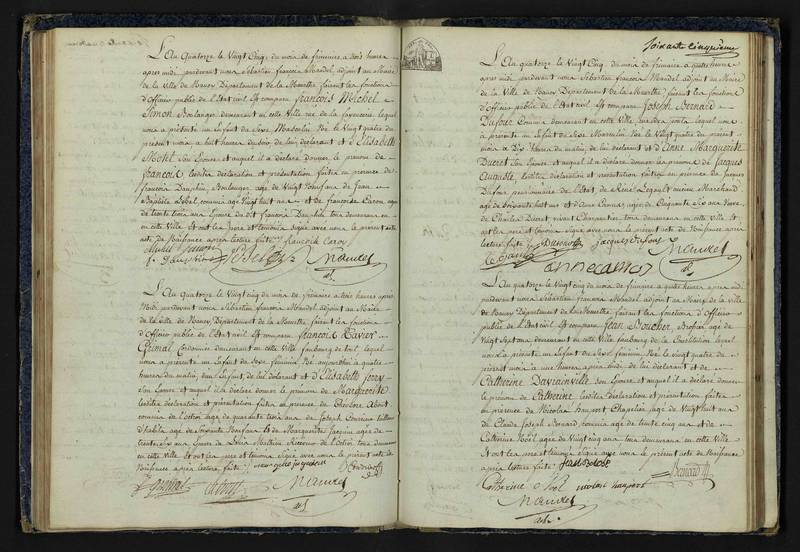 L'an quatorze le Vingt Cinq, du mois de frimaire a trois heures
après midi, pardevant nous Sébastien françois Mandel, adjoint au Maire
de la Ville de Nancy Département de la Meurthe faisant les fonctions
d'Officier public de l'Etat civil Est comparu françois Michel
Simon Boulanger demeurant en cette Ville rue de la lequel
nous a présenté un Enfant du Sexe Masculin Né le Vingt quatre du
présent mois a huit heures du soir de lui déclarant et d'Elisabeth
Michel Son Epouse et auquel il a déclaré donner le prénom de
françois lesdites déclaration et présentation faites en présence de
francois Dauphin, Boulanger agé de Vingt Neuf ans de Jean
Baptiste commis agé Vingt huit ans et de francoise Caroy agée
de trente trois ans Epouse du dit francois Dauphin tous demeurans en
en cette Ville Et ont les pere et témoins Signé avec nous le présent
acte de Naissance après lecture faite francoise Caroy
Mandel
adt
L'an quatorze le Vingt Cinq du mois de frimaire a trois heures après
Midi pardevant nous Sébastien françois Mandel adjoint au Maire
de la Ville de Nancy, Département de la Meurthe, faisant les fonctions
d'Officier public de l'Etat civil Est comparu françois Xavier
Grimal Cordonnier demeurant en cette Ville faubourg de lequel
nous a présenté un Enfant du Sexe féminin Né aujourd'hui a quatre
heures du matin dans l'Enfant de lui déclarant et d'Elisabeth ferry
Son Epouse et auquel il a déclaré donner le prénom de Marguerite
lesdites déclaration et présentation faites en présence de
commis de l'octroi agé de quarante trois ans de Joseph tailleur
d'habits agé de Soixante Neuf ans & de Marguerite Jacquin agée de
trente six ans Epouse de Louis Mathieu Receveur de l'octroi tous demeurans
en cette ville Et ont les pere et témoins Signé avec nous le présent acte de
Naissance après lecture faite marguerite jacquin
Grimal Mandel
adt
Soixante cinquième
L'an quatorze le vingt Cinq du mois de frimaire a quatre heures
après midi, pardevant nous Sébastien François Mandel adjoint au Maire
de la Ville de Nancy Département de la Meurthe faisant les fonctions
d'Officier public de l'Etat civil Est comparu Joseph Bernard
Dufour Commis demeurant en cette Ville lequel nous
a présenté un Enfant du Sexe Masculin Né le Vingt quatre du présent
mois a Dix heures du matin, de lui déclarant et d'Anne Marguerite
Ducret Son Epouse et auquel il a déclaré donner les prénoms de Jacques
Auguste lesdites déclaration et présentation faites en présence de Jacques
Dufour, pensionnaire de l'Etat, de ancien Marchand
agé de Soixante huit ans et d'Anne Camus, agée de Cinquante Six ans Veuve
de Charles Ducret vivant Charpentier tous demeurans en cette ville Et
ont les pere et témoins Signé avec nous le présent acte de Naissance après
lecture faite Dufour jacques Dufour
Mandel
anne camus adt
L'an quatorze le vingt cinq du mois de frimaire a quatre heures après midi
pardevant nous Sébastien francois Mandel adjoint au Maire de la ville
de Nancy Département de la Meurthe, faisant les fonctions d'Officier
public de l'Etat civil Est comparu Jean Boucher, Brossier agé de
vingt sept ans, demeurant en cette Ville faubourg de la Constitution lequel
nous a présenté un Enfant du Sexe féminin Né le vingt quatre du
présent mois a une heure après midi, de lui déclarant et de
Catherine Davrainville Son Epouse et auquel il a déclaré donner
le prénom de Catherine lesdites Déclaration et présentation faites
en présence de Nicolas haupert Chapelier agé de Vingt huit ans
de Claude Joseph Bernard commis agé de trente cinq ans et de
Catherine Noël agée de Vingt cinq ans tous demeurans en cette Ville
Et ont les pere et témoins Signé avec nous le présent acte de Naissance
après lecture faite Jean Boucher
Bernard
Catherine Noel nicolas haupert
Mandel
adt